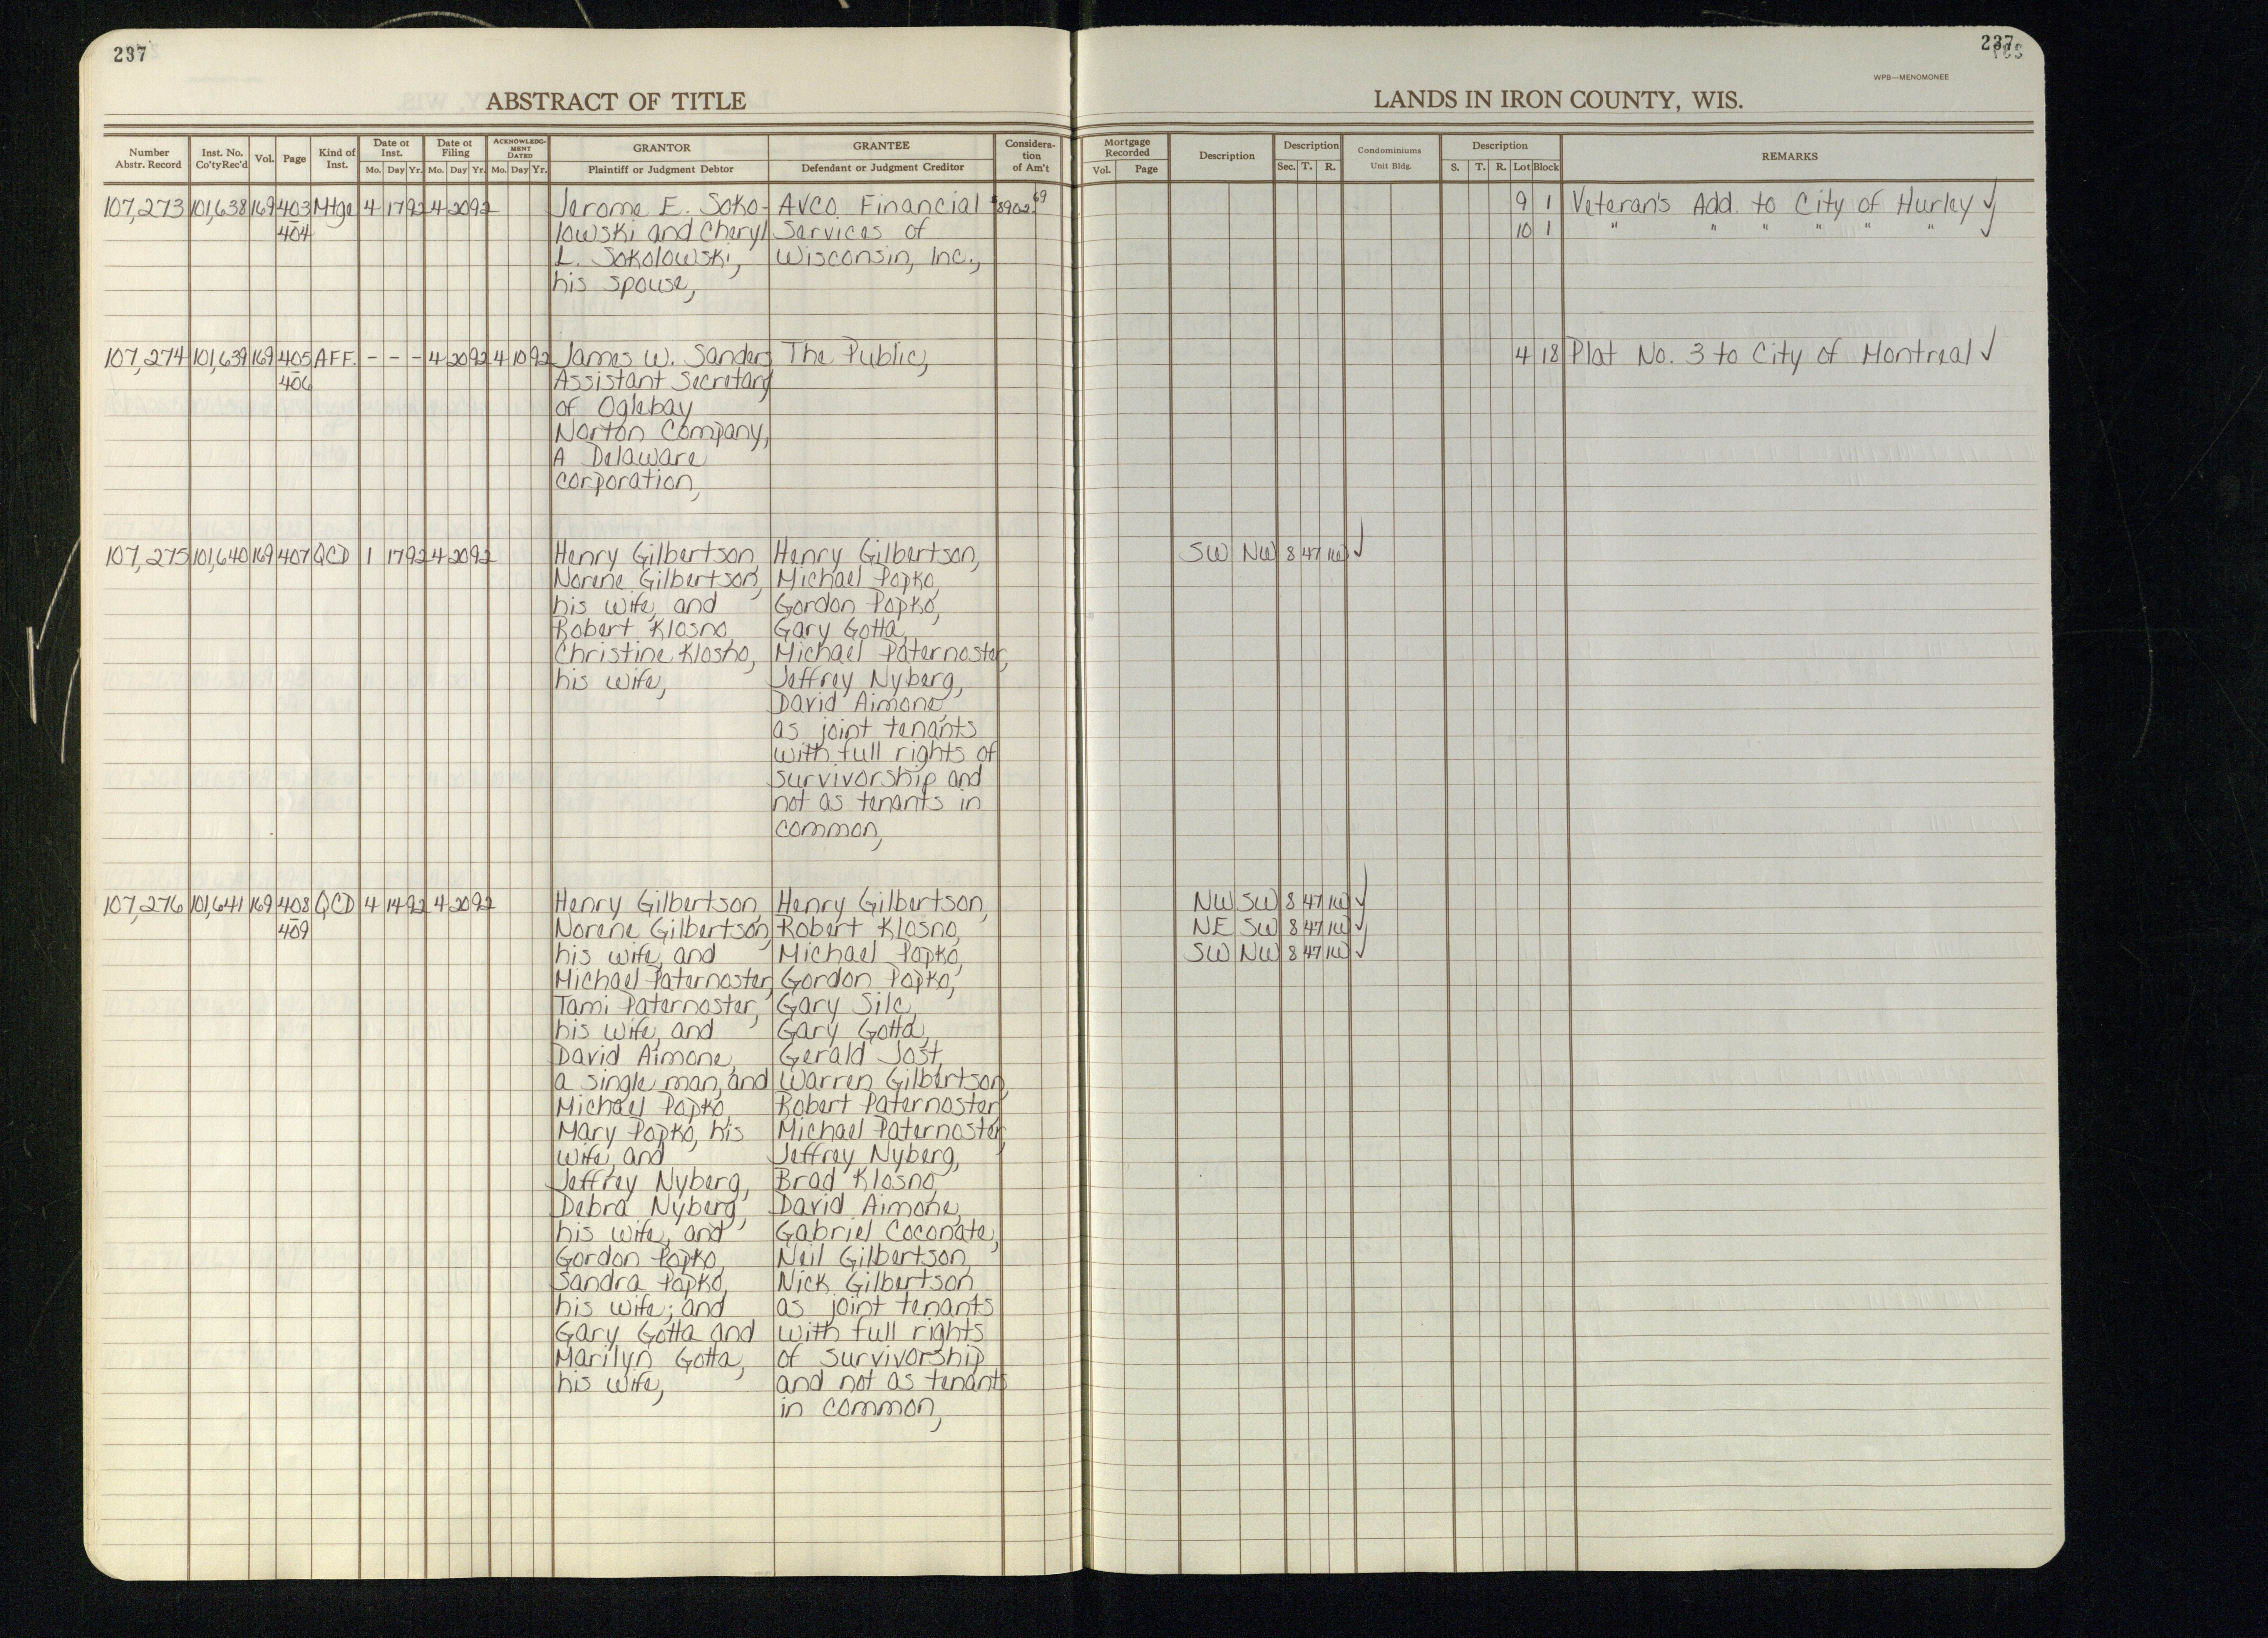 237
237
WPB—MENOMONEE
ABSTRACT OF TITLE
LANDS IN IRON COUNTY, WIS.
Number Abstr. Record
Inst. No. Co'ty Rec'd
Vol.
Page
Kind of Inst.
Date of Inst.
Mo. Day Yr.
Date of Filing
Mo. Day Yr.
ACKNOWLEDGMENT DATED
Mo. Day Yr.
GRANTOR
Plaintiff or Judgment Debtor
GRANTEE
Defendant or Judgment Creditor
Consideration of Am't
Mortgage Recorded
Vol. Page
Description
Description
Sec. T. R.
Condominiums
Unit Bldg.
Description
S. T. R. Lot Block
REMARKS
107,273 101,638 169 403 Mtge 4 17 92 4 20 92 Jerome E. Soko- Avco Financial $8902.69 9 1 Veteran's Add. to City of Hurley ✓
404 lowski and Cheryl Services of 10 1 " " " " " " ✓
L. Sokolowski, Wisconsin, Inc.,
his spouse,
107,274 101,639 169 405 AFF. - - - 4 20 92 4 10 92 James W. Sanders The Public, 4 18 Plat No. 3 to City of Montreal ✓
406 Assistant Secretary
of Oglebay
Norton Company,
A Delaware
corporation,
107,275 101,640 169 407 QCD 1 17 92 4 20 92 Henry Gilbertson, Henry Gilbertson, SW NW 8 47 1W ✓
Norene Gilbertson, Michael Popko,
his wife, and Gordon Popko,
Robert Klosno, Gary Gotta,
Christine Klosno, Michael Paternoster,
his wife, Jeffrey Nyberg,
David Aimone,
as joint tenants
with full rights of
survivorship and
not as tenants in
common,
107,276 101,641 169 408 QCD 4 14 92 4 20 92 Henry Gilbertson, Henry Gilbertson, NW SW 8 47 1W ✓
409 Norene Gilbertson, Robert Klosno, NE SW 8 47 1W ✓
his wife, and Michael Popko, SW NW 8 47 1W ✓
Michael Paternoster, Gordon Popko,
Tami Paternoster, Gary Silc,
his wife, and Gary Gotta,
David Aimone, Gerald Jost,
a single man, and Warren Gilbertson,
Michael Popko, Robert Paternoster,
Mary Popko, his Michael Paternoster,
wife, and Jeffrey Nyberg,
Jeffrey Nyberg, Brad Klosno,
Debra Nyberg, David Aimone,
his wife, and Gabriel Coconate,
Gordon Popko, Neil Gilbertson,
Sandra Popko, Nick Gilbertson
his wife; and as joint tenants
Gary Gotta and with full rights
Marilyn Gotta, of survivorship
his wife, and not as tenants
in common,